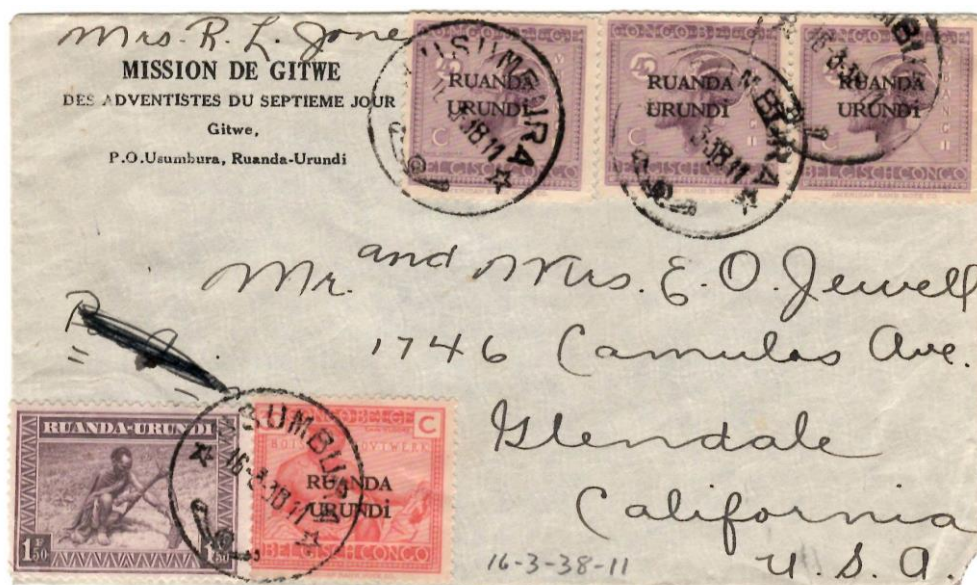 Mrs. R. L. Jone
MISSION DE GITWE
DES ADVENTISTES DU SEPTIEME JOUR
Gitwe,
P.O.Usumbura, Ruanda-Urundi
CONGO BELGE
RUANDA
URUNDI
C
BELGISCH CONGO
USUMBURA
CONGO BELGE
RUANDA
URUNDI
C
BELGISCH CONGO
CONGO BELGE
RUANDA
URUNDI
C
BELGISCH CONGO
Mr. and Mrs. E. O. Jewell
1746 Camulas Ave.
Glendale
California
U. S. A.
RUANDA-URUNDI
1F50
USUMBURA
CONGO BELGE
C
RUANDA
URUNDI
BELGISCH CONGO
16-3-38-11